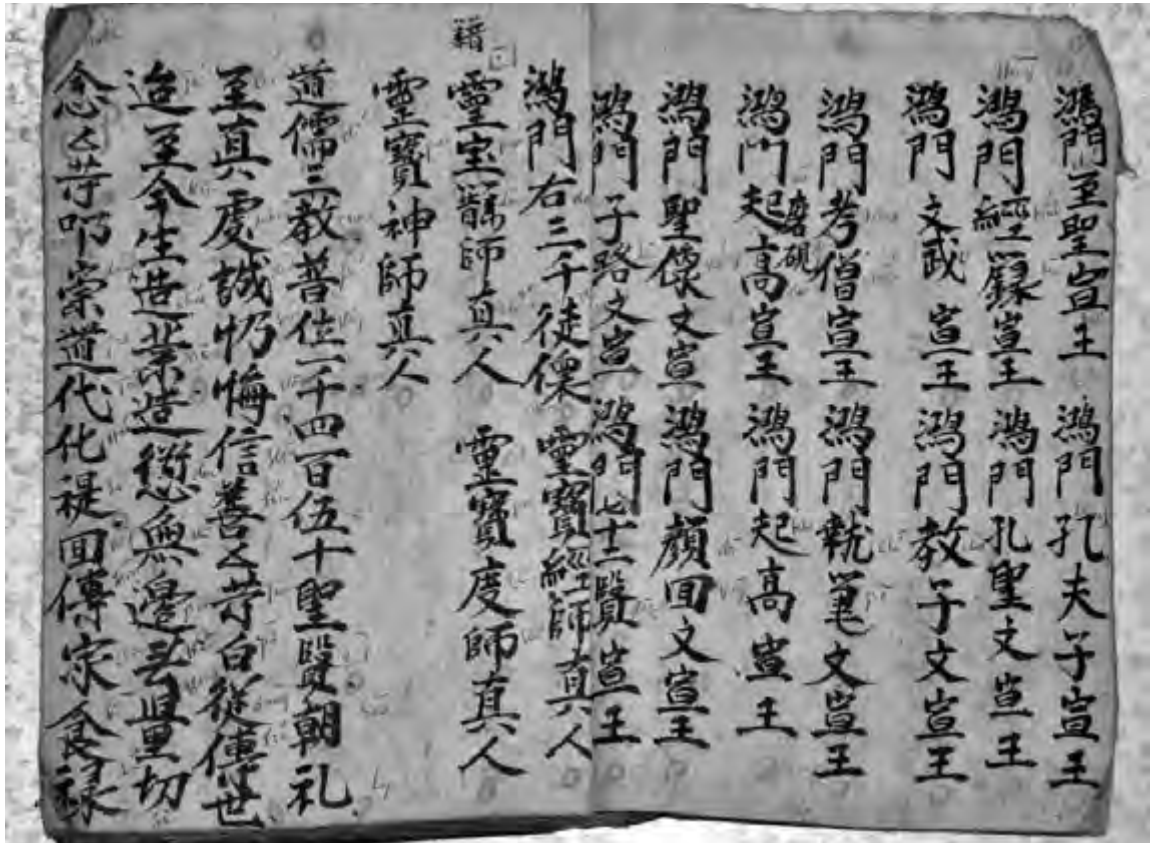 鴻門至聖宣王 鴻門孔夫子宣王
鴻門經籙宣王 鴻門孔聖文宣王
鴻門文武宣王 鴻門教子文宣王
鴻門考僧宣王 鴻門執筆文宣王
鴻門磨硯起高宣王 鴻門起高宣王
鴻門聖傢文宣 鴻門顏回文宣王
鴻門子路文宣 鴻門七十二賢宣王
鴻門右三千徒傢 靈寶經師真人
靈宝籍師真人 靈寶度師真人
籍
靈寶神師真人
道儒三教普位一千四百伍十聖賢朝礼
至真處誠忉悔信善々等白從傳世
迨至今生造業造愆無邊无量切
念々等叩崇道代化褆回傳家食禄